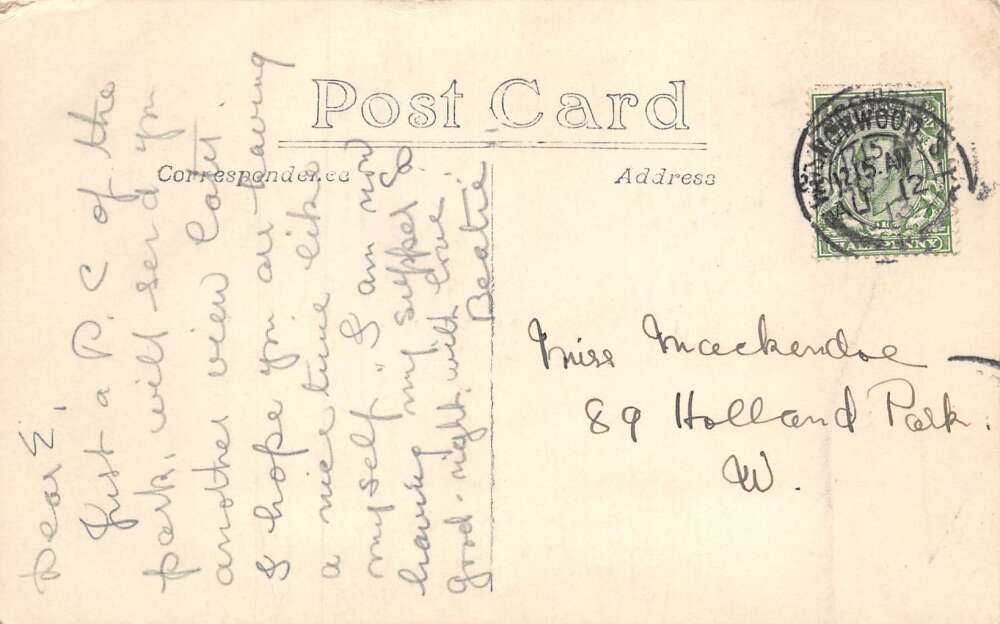 Post Card
Correspondence
Address
Dear E,
Just a P. C of the
park, will send you
another view later
I hope you are having
a nice time like
myself. I am now
having my supper so
good-night, with love
Beatie
Miss Mackendoe
89 Holland Park.
W.
NORWOOD S
12.15 AM
12
HALFPENNY